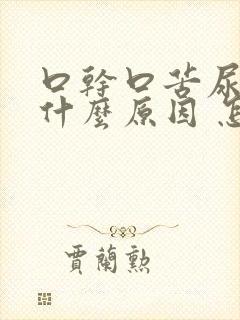 口幹口苦尿
什麼原因 怎
賈蘭勲